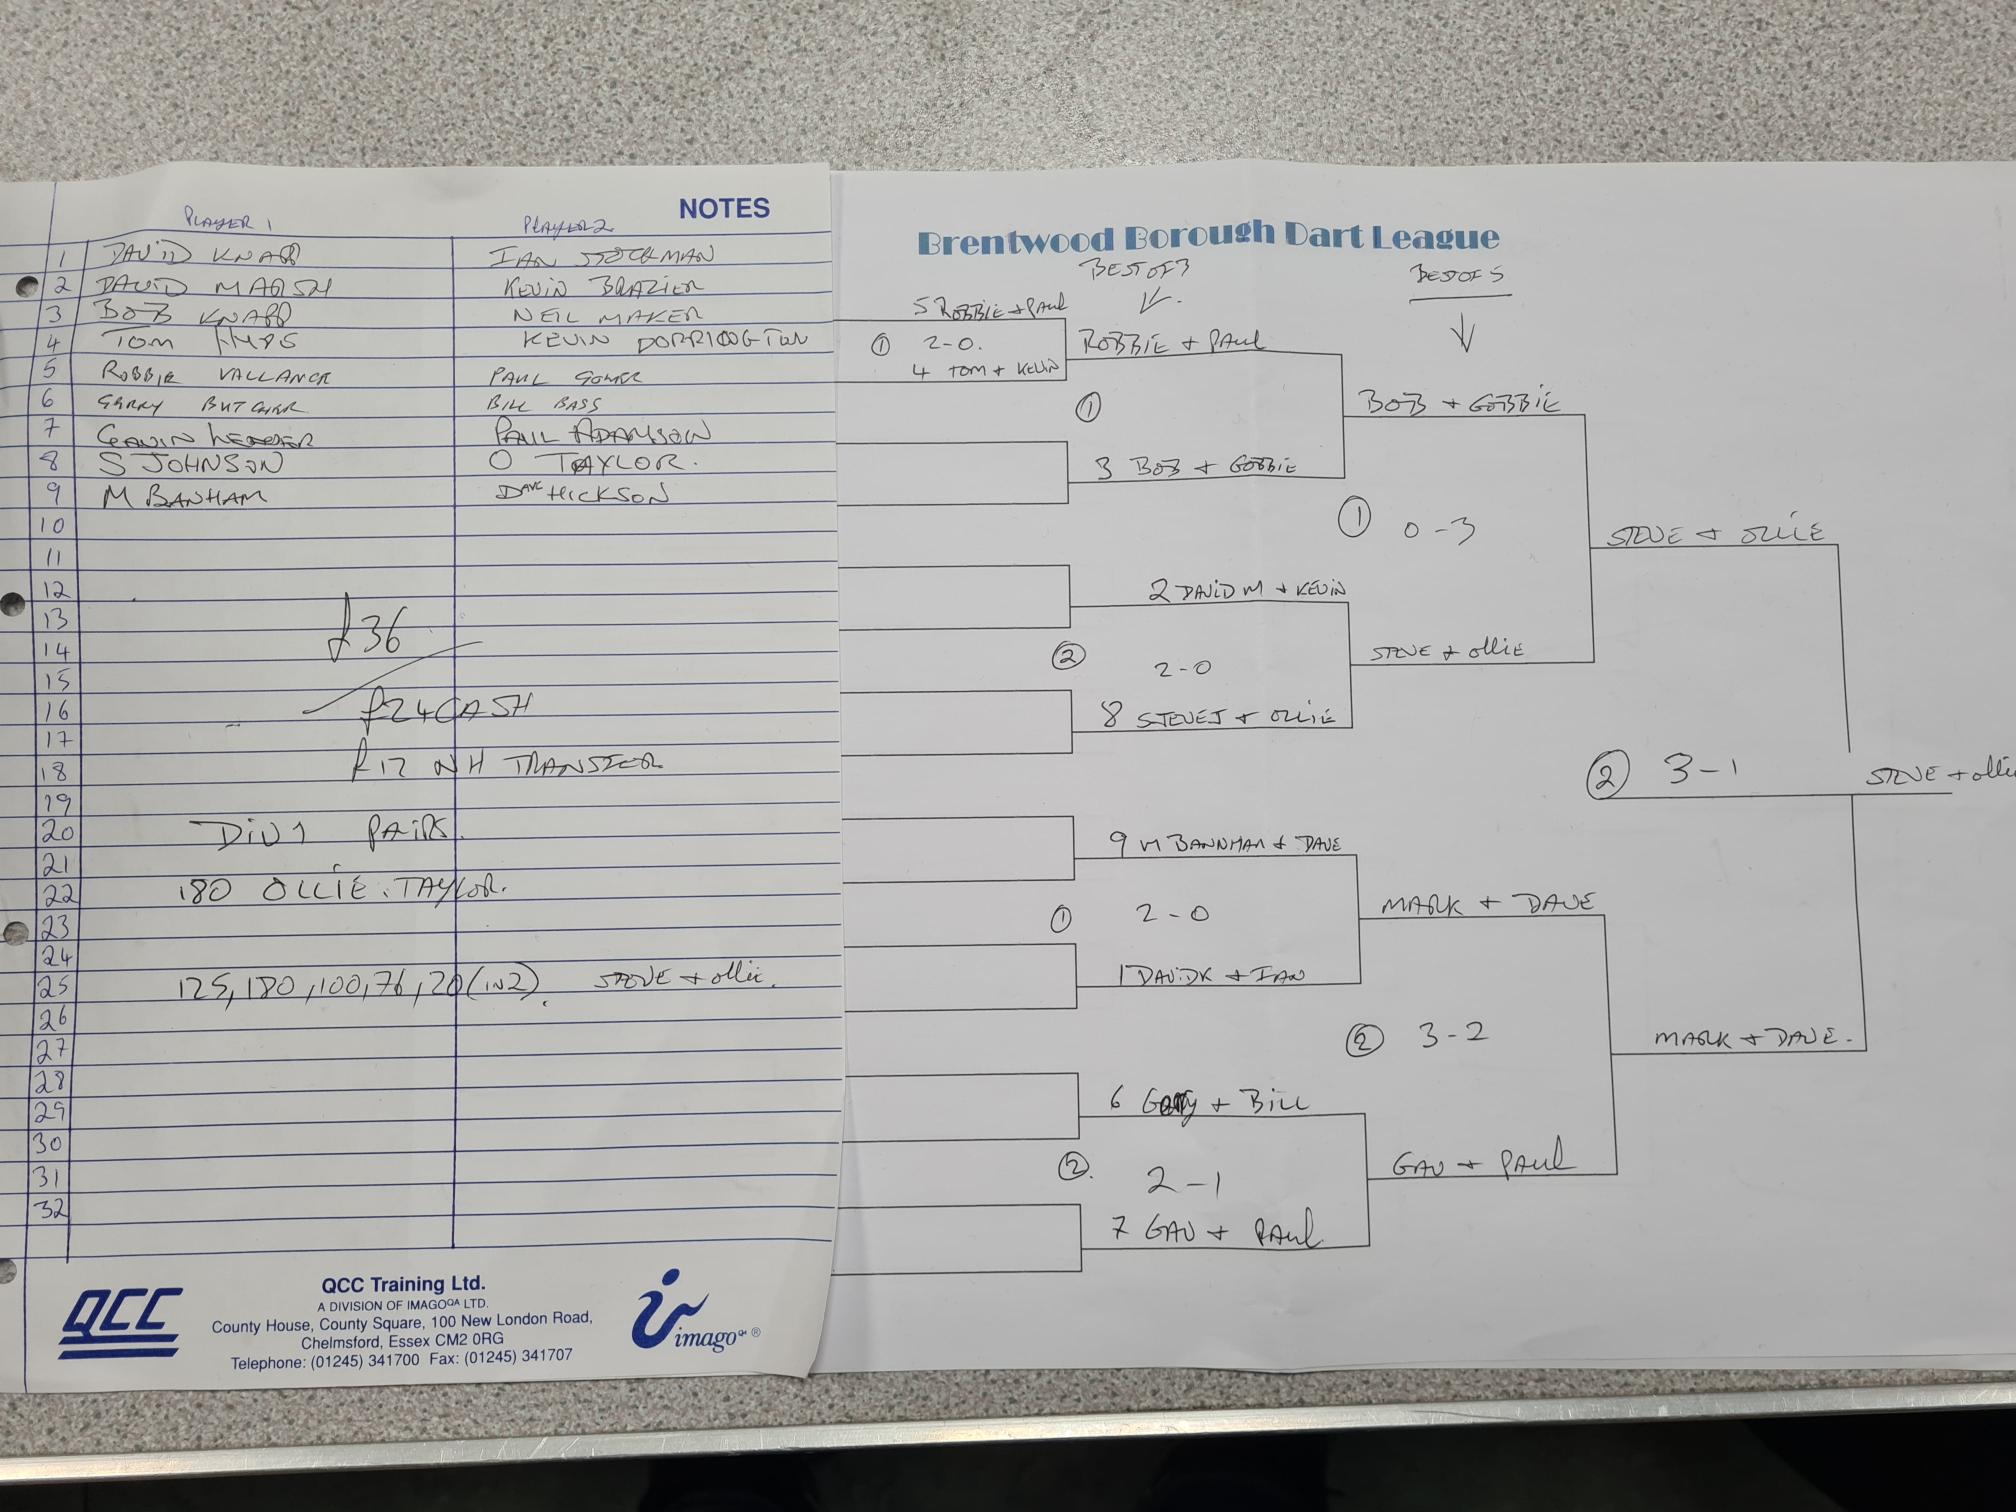 NOTES
PLAYER 1 PLAYER 2
1 DAVID KNAPP IAN STOCKMAN
2 DAVID MARSH KEVIN BRAZIER
3 BOB KNAPP NEIL MAKER
4 TOM KEVIN DORRINGTON
5 ROBBIE VALLANCE PAUL GOWER
6 GARRY BUTCHER BILL BASS
7 GAVIN PAUL ADAMSON
8 S JOHNSON O TAYLOR.
9 M BANHAM DAVE HICKSON
10
11
12
13
14
15
16
17
18
19
20
21
22
23
24
25
26
27
28
29
30
31
32
£36
£24 CASH
£12 NH TRANSFER
DIV 1 PAIRS.
180 OLLIE. TAYLOR.
125, 180, 100, 76, 20 (IN 2). STEVE + ollie.
QCC
QCC Training Ltd.
A DIVISION OF IMAGOQA LTD.
County House, County Square, 100 New London Road,
Chelmsford, Essex CM2 0RG
Telephone: (01245) 341700 Fax: (01245) 341707
imago QA ®
Brentwood Borough Dart League
BEST OF 3
BEST OF 5
5 ROBBIE + PAUL
① 2-0.
4 TOM + KEVIN
ROBBIE + PAUL
①
3 BOB + GOBBIE
BOB + GOBBIE
① 0-3
2 DAVID M + KEVIN
② 2-0
8 STEVE J + OLLIE
STEVE + ollie
STEVE + OLLIE
② 3-1
STEVE + ollie
9 M BANNHAM + DAVE
① 2-0
1 DAVID K + IAN
MARK + DAVE
② 3-2
MARK + DAVE.
6 + BILL
②. 2-1
7 GAV + PAUL
GAV + PAUL